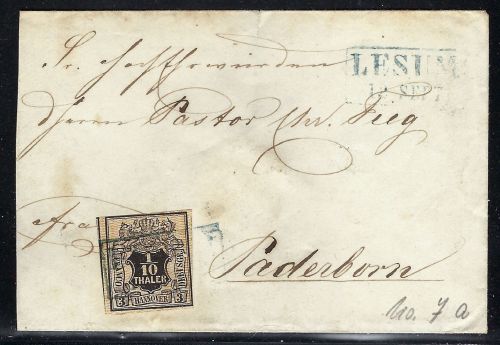 LESUM
12 SEPT
Sr. Hochehrwürden
Herrn Pastor
franco
Paderborn
1/10
THALER
3 HANNOVER 3
No. 7 a